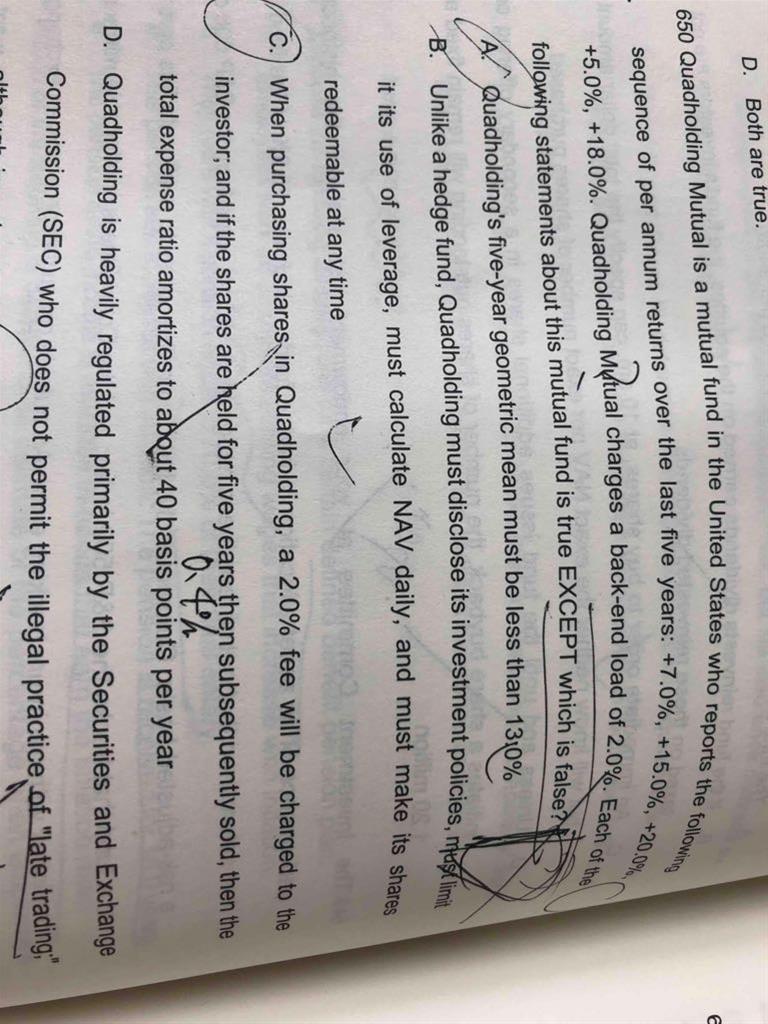 D. Both are true.
650 Quadholding Mutual is a mutual fund in the United States who reports the following
sequence of per annum returns over the last five years: +7.0%, +15.0%, +20.0%,
+5.0%, +18.0%. Quadholding Mutual charges a back-end load of 2.0%. Each of the
following statements about this mutual fund is true EXCEPT which is false?
A. Quadholding's five-year geometric mean must be less than 13.0%
B. Unlike a hedge fund, Quadholding must disclose its investment policies, must limit
it its use of leverage, must calculate NAV daily, and must make its shares
redeemable at any time
C. When purchasing shares in Quadholding, a 2.0% fee will be charged to the
investor; and if the shares are held for five years then subsequently sold, then the
0.4%
total expense ratio amortizes to about 40 basis points per year
D. Quadholding is heavily regulated primarily by the Securities and Exchange
Commission (SEC) who does not permit the illegal practice of "late trading,"
6